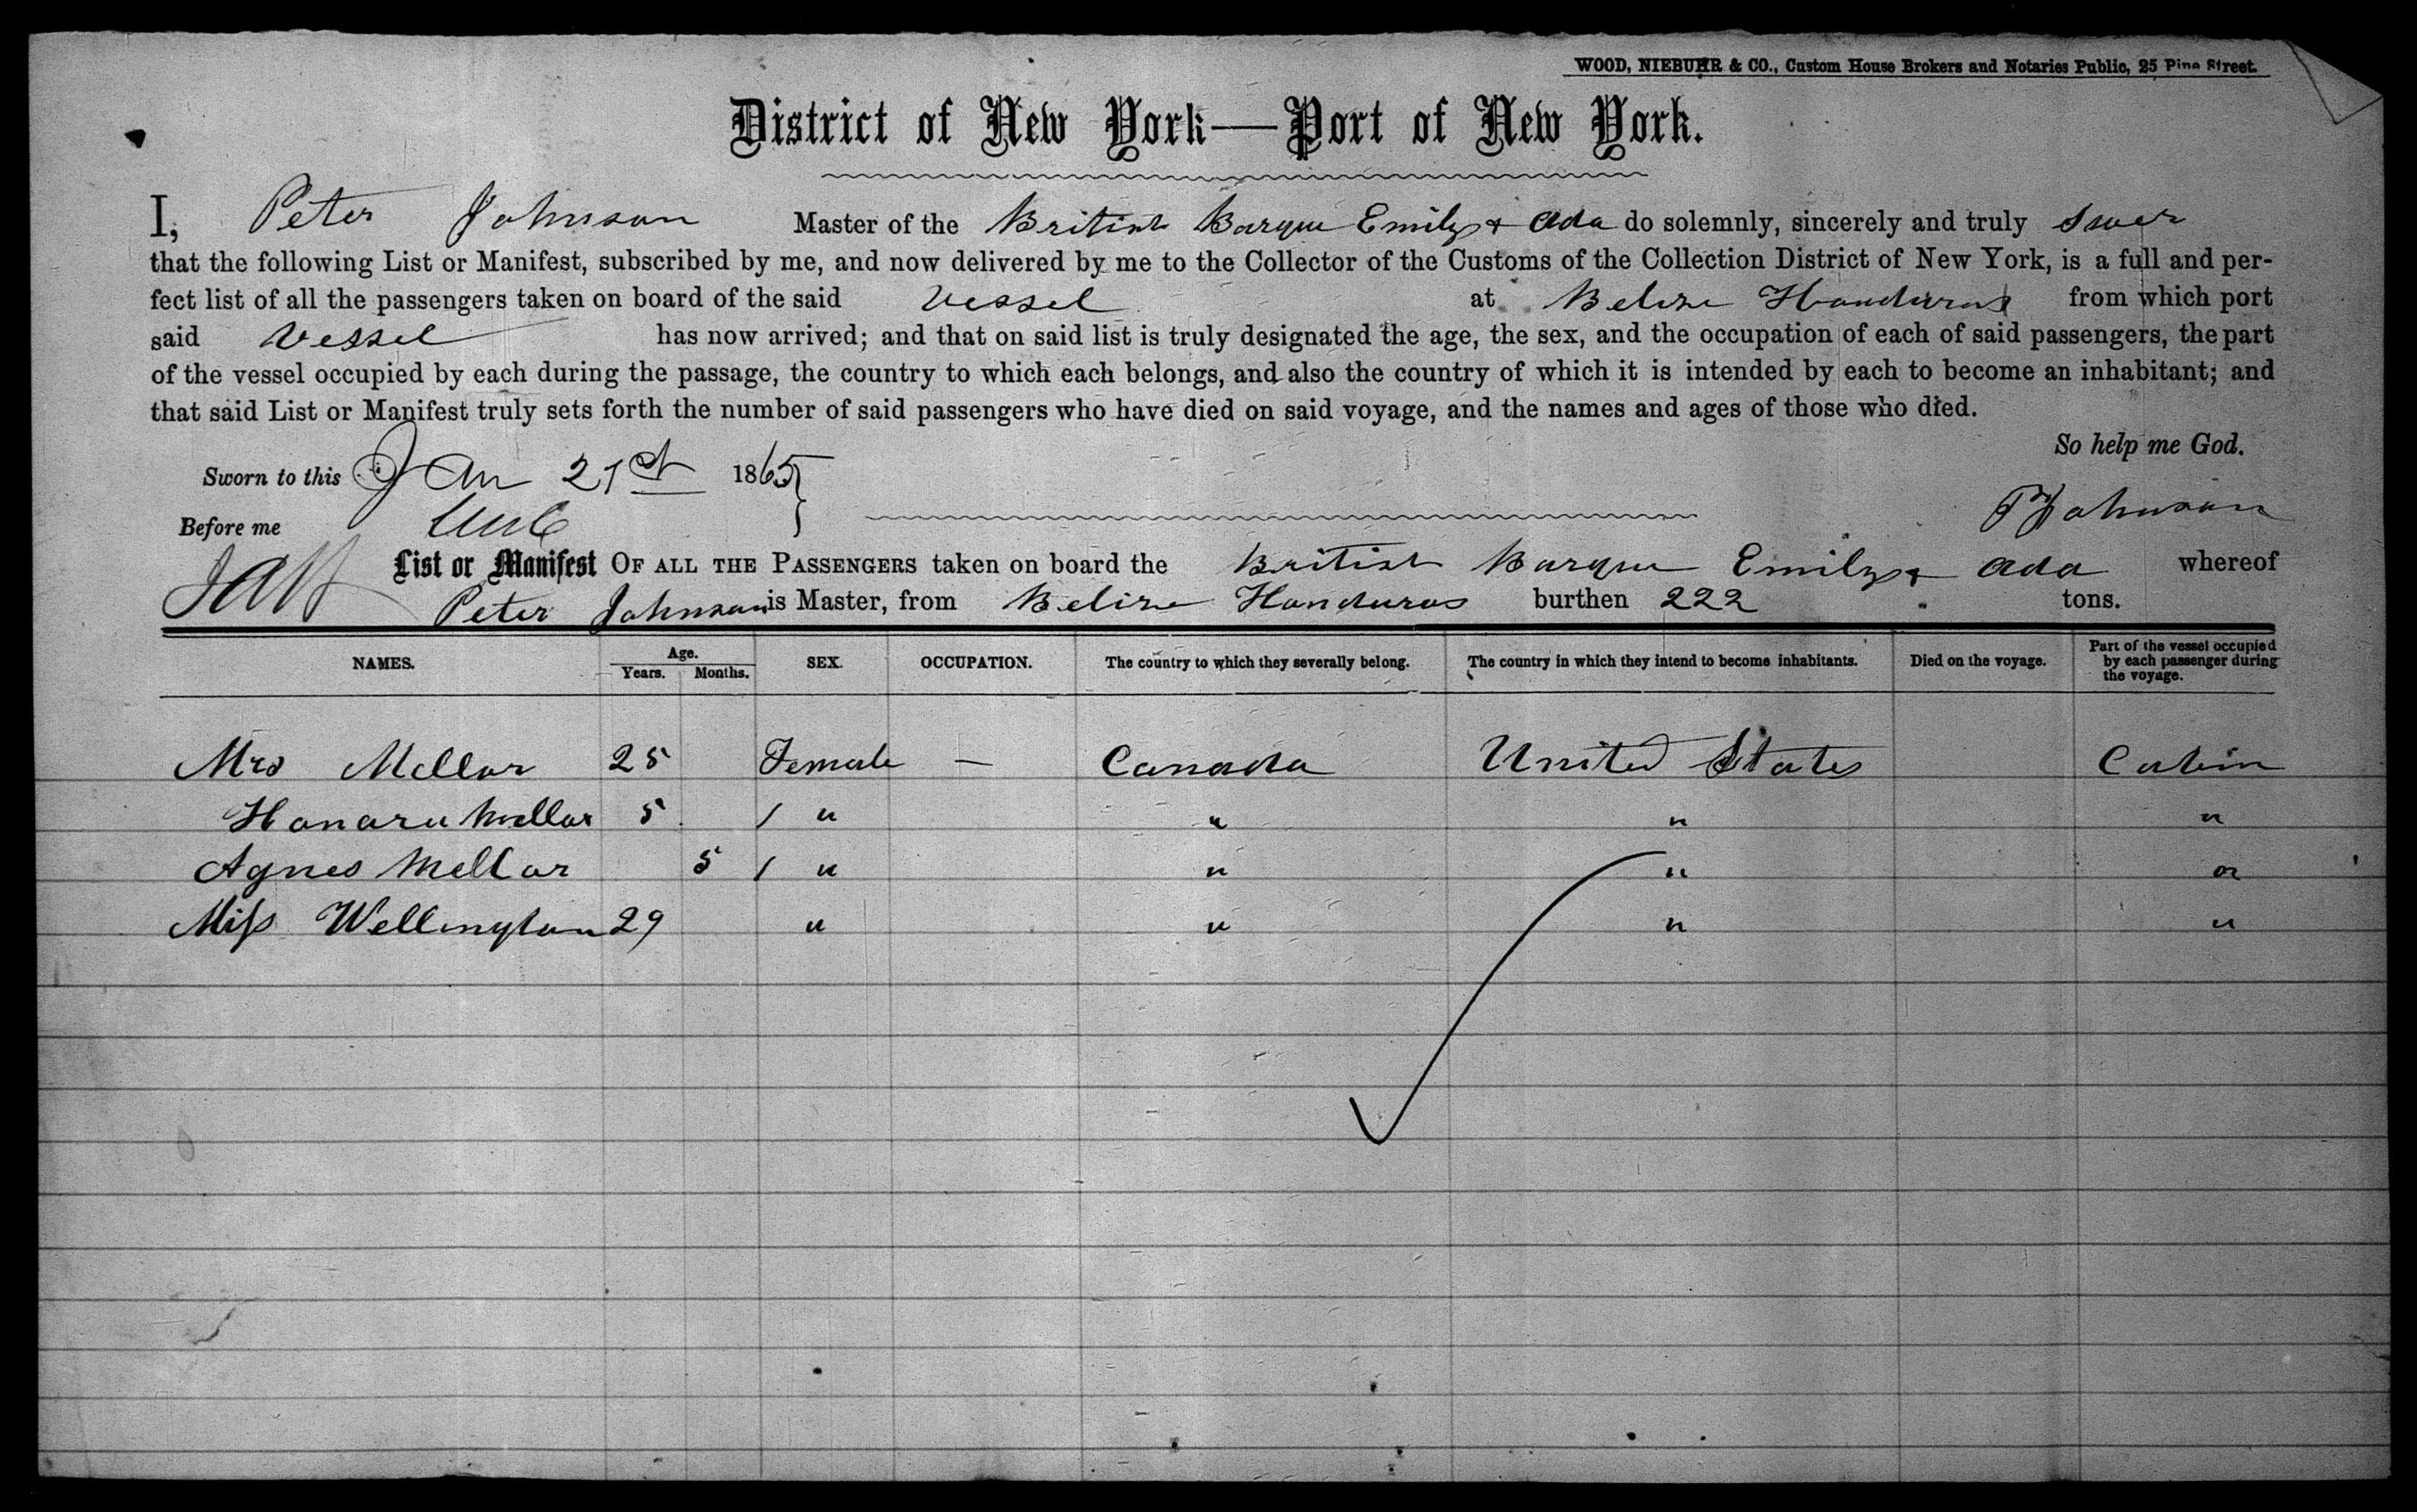 WOOD, NIEBUHR & CO., Custom House Brokers and Notaries Public, 25 Pine Street.
District of New York—Port of New York.
I, Peter Johnson Master of the British Barque Emily & Ada do solemnly, sincerely and truly Swer
that the following List or Manifest, subscribed by me, and now delivered by me to the Collector of the Customs of the Collection District of New York, is a full and per-
fect list of all the passengers taken on board of the said Vessel at Belize Honduras from which port
said Vessel has now arrived; and that on said list is truly designated the age, the sex, and the occupation of each of said passengers, the part
of the vessel occupied by each during the passage, the country to which each belongs, and also the country of which it is intended by each to become an inhabitant; and
that said List or Manifest truly sets forth the number of said passengers who have died on said voyage, and the names and ages of those who died.
So help me God.
Sworn to this Jan 21st 1865
PJohnson
Before me
List or Manifest OF ALL THE PASSENGERS taken on board the British Barque Emily & Ada whereof
Peter Johnson is Master, from Belize Honduras burthen 222 tons.
NAMES. Age. Years. Months. SEX. OCCUPATION. The country to which they severally belong. The country in which they intend to become inhabitants. Died on the voyage. Part of the vessel occupied by each passenger during the voyage.
Mrs Mellor 25 Female — Canada United States Cabin
Honaru Mellor 5 / " " " "
Agnes Mellor 5 / " " " "
Miss Wellington 29 " " " "